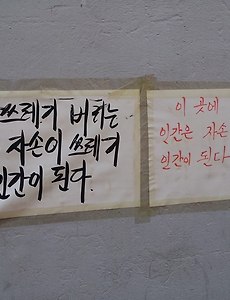 쓰레기 버리는
자손이 쓰레기
인간이 된다.
이 곳에
인간은 자손
인간이 된다